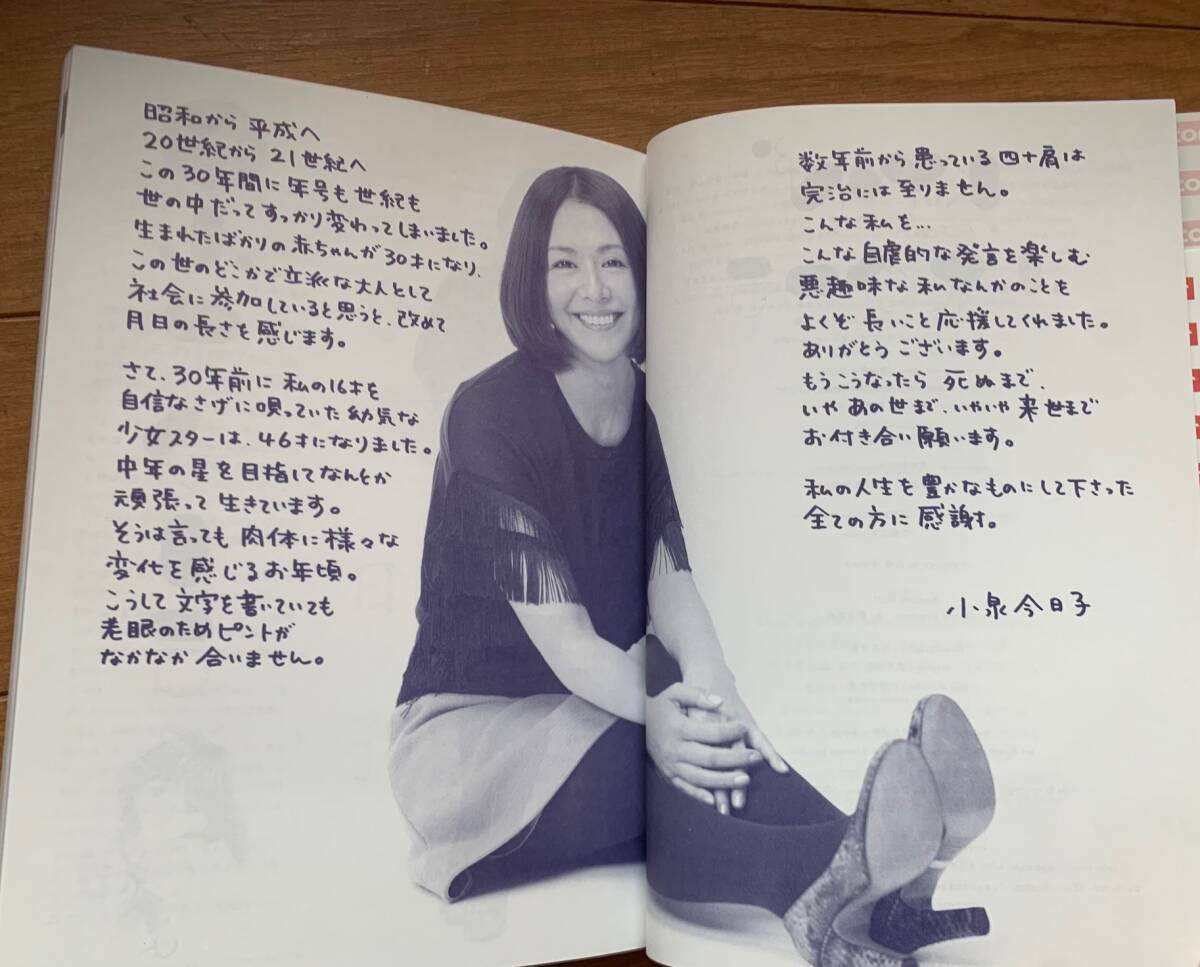 昭和から 平成へ
20世紀から 21世紀へ
この30年間に年号も世紀も
世の中だってすっかり変わってしまいました。
生まれたばかりの赤ちゃんが30才になり、
この世のどこかで立派な大人として
社会に参加していると思うと、改めて
月日の長さを感じます。
さて、30年前に 私の16才を
自信なさげに唄っていた幼気な
少女スターは、46才になりました。
中年の星を目指してなんとか
頑張って 生きています。
そうは言っても 肉体に様々な
変化を感じるお年頃。
こうして文字を書いていても
老眼のためピントが
なかなか合いません。
数年前から患っている四十肩は
完治には至りません。
こんな私を…
こんな自虐的な発言を楽しむ
悪趣味な私なんかのことを
よくぞ長いこと応援してくれました。
ありがとうございます。
もうこうなったら 死ぬまで、
いやあの世まで、いやいや来世まで
お付き合い願います。
私の人生を豊かなものにして下さった
全ての方に感謝。
小泉今日子